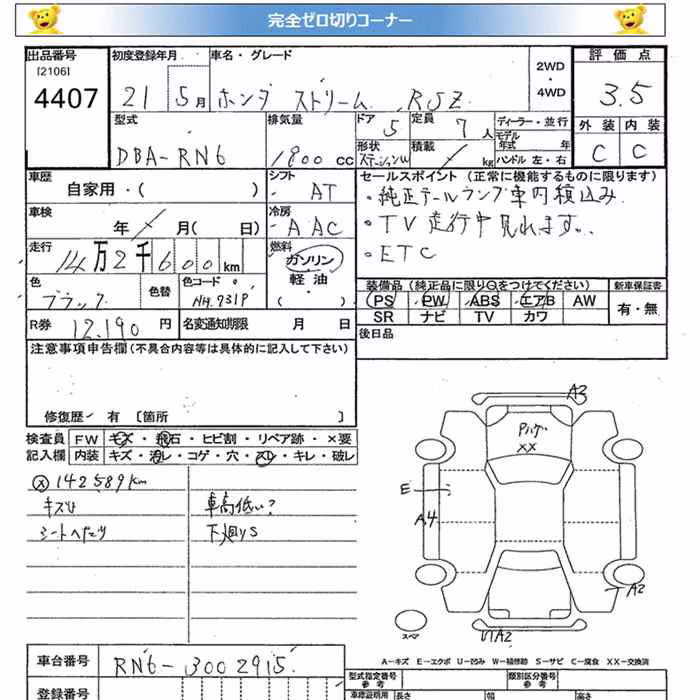 完全ゼロ切りコーナー
出品番号 初度登録年月 車名・グレード 2WD 評価点
[2106]
4407 21 5月 ホンダ ストリーム RSZ ・4WD 3.5
型式 排気量 ドア 5 定員 7人 ディーラー・並行 外装 内装
DBA-RN6 1800cc 形状 ステーションW 積載 / kg モデル年式 年 C C
ハンドル 左・右
車歴 シフト セールスポイント (正常に機能するものに限ります)
自家用・( ) AT ・純正テールランプ車内積込み
車検 年 / 月( 日) 冷房 AAC ・TV走行中見れます。
走行 14万2千600km 燃料 ガソリン ・ETC
軽油
・( )
色 色替 色コード 装備品 (純正品に限り○をつけてください) 新車保証書
ブラック NH.731P PS PW ABS エアB AW 有・無
SR ナビ TV カワ
R券 12,190円 名変通知期限 月 日 後日品
注意事項申告欄(不具合内容等は具体的に記入して下さい)
修復歴/ 有 [箇所 ]
検査員 FW キズ・飛石・ヒビ割・リペア跡・×要
記入欄 内装 キズ・汚レ・コゲ・穴・スレ・キレ・破レ
メ 142589km
キズU 車高低い?
シートヘたり 下廻りS
A3
Pハゲ
XX
E
A4
A2
スペア
U1A2
A-キズ E-エクボ U-凹み W-補修跡 S-サビ C-腐食 XX-交換済
車台番号 RN6-3002915
登録番号
型式指定番号 参考 類別区分番号 参考
車庫証明用 長さ 幅 高さ